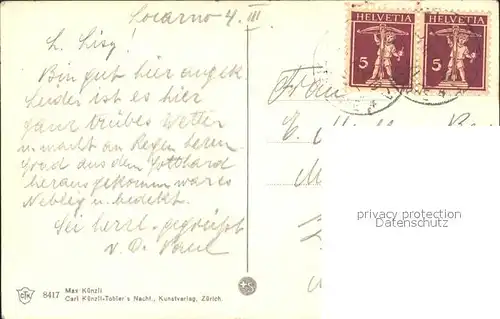 Locarno 4. III
L. Lisy!
Bin gut hier angek.
Leider ist es hier
ganz trübes Wetter
u. macht an Regen herum.
Grad aus dem Gotthard
herausgekommen war es
Neblig u. bedekt.
Sei herzl. gegrüßt
v. D. Paul
HELVETIA
5
HELVETIA
5
Frau
privacy protection
Datenschutz
CTK 8417 Max Künzli
Carl Künzli-Tobler's Nachf., Kunstverlag, Zürich.